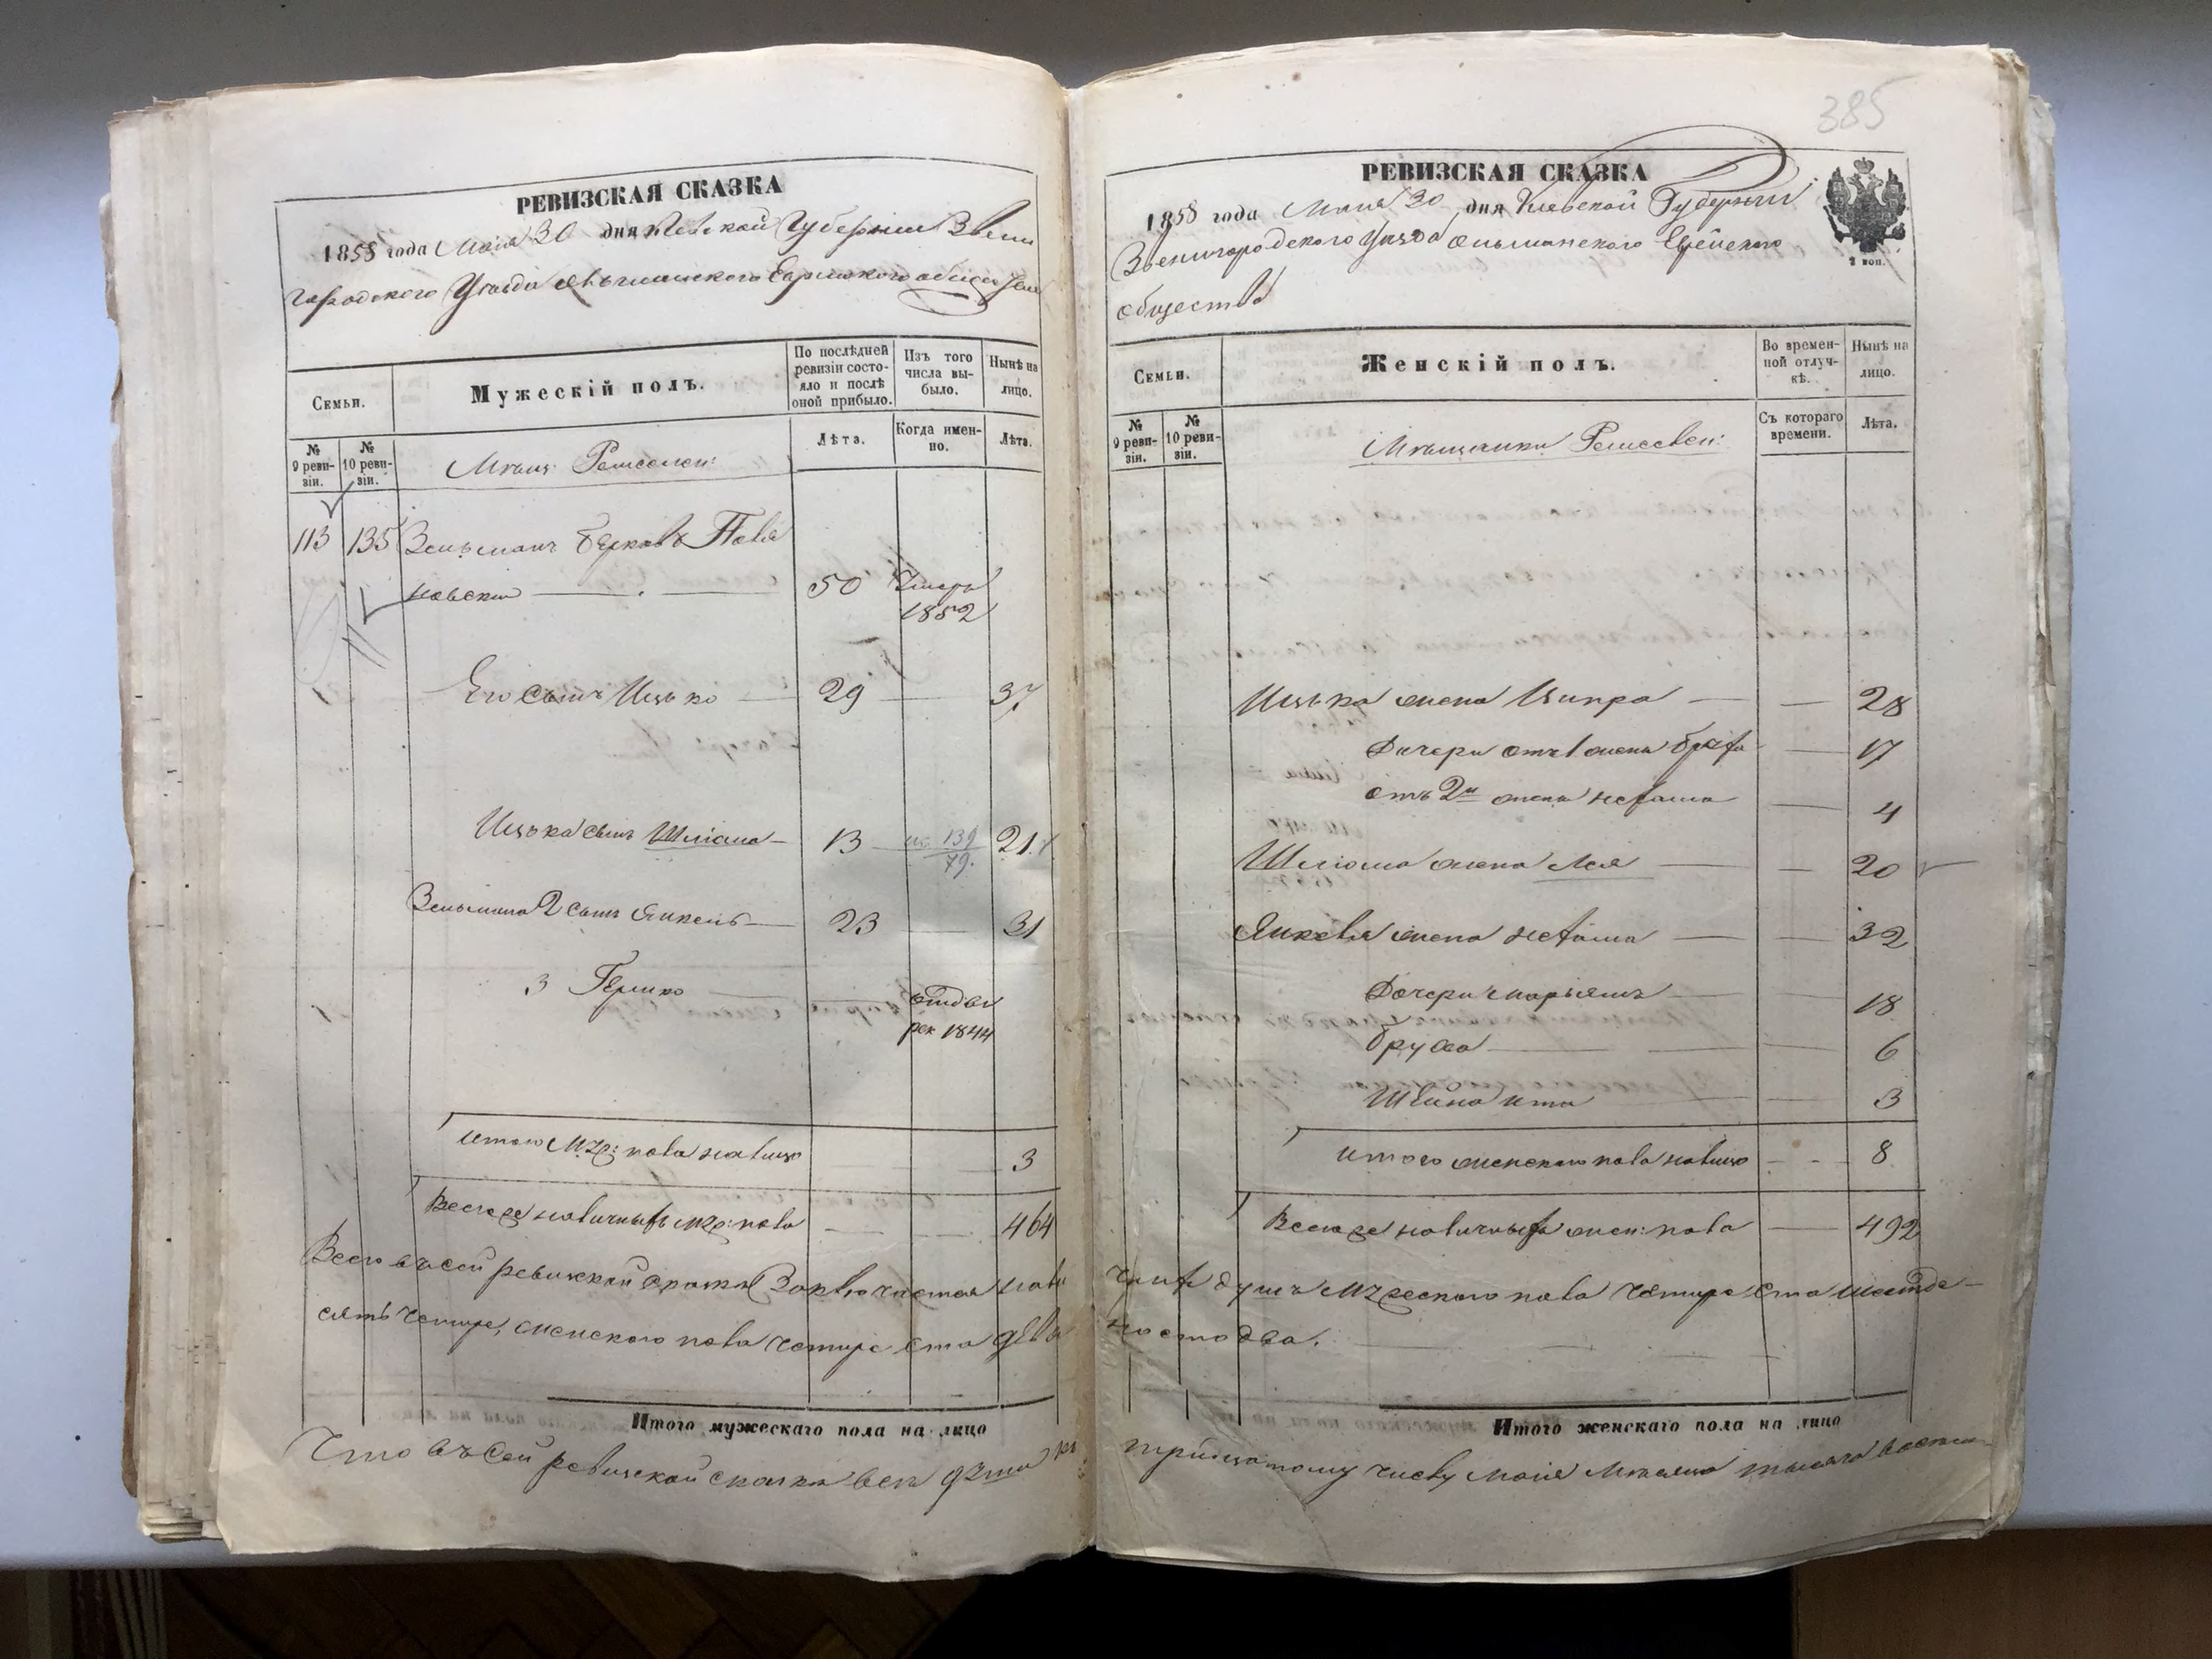 РЕВИЗСКАЯ СКАЗКА
1858 года Маія 30 дня Кіевской Губерніи Звени
городского Уѣзда Ольшанского Еврейского общества
Семьи.
Мужескій полъ.
По послѣдней ревизіи состояло и послѣ оной прибыло.
Изъ того числа выбыло.
Нынѣ на лицо.
№ 9 ревизіи.
№ 10 ревизіи.
Мѣщ:
Лѣта.
Когда именно.
Лѣта.
113 135 Зельманъ Берковъ Поля
новскій 50 Умеръ
1852
Его сынъ Ицько 29 37
Ицька сынъ Шліома 13 по 139 21
79.
Зельмана 2 сынъ Янкель 23 31
3 Гершко отдан
рек 1844
Итого муж: пола налицо 3
Всего же наличныхъ муж: пола 464
Всего въ сей ревизкой сказкѣ Заключается нали
сять четыре, женского пола четыре ста девя
Итого мужескаго пола на лицо
Что въ сей ревизской сказкѣ всѣ души къ
385
РЕВИЗСКАЯ СКАЗКА
1858 года Маія 30 дня Кіевской Губерніи
Звенигородского Уѣзда Ольшанского Еврейского
общества
2 коп.
Семьи.
Женскій полъ.
Во временной отлучкѣ.
Нынѣ на лицо.
№ 9 ревизіи.
№ 10 ревизіи.
Мѣщанки
Съ котораго времени.
Лѣта.
Ицька жена Ципра 28
Дочери отъ 1 жены 17
отъ 2й жены Нехама 4
Шліома жена Лея 20
Янкеля жена Нехама 32
Дочери Марьямъ 18
Бруха 6
Шейна Ита 3
Итого женского пола налицо 8
Всего же наличныхъ жен: пола 492
чныхъ душъ мужеского пола четыре ста шестде-
носто два.
Итого женскаго пола на лицо
тридцатому числу Маія Мѣсяца тысяча восем-